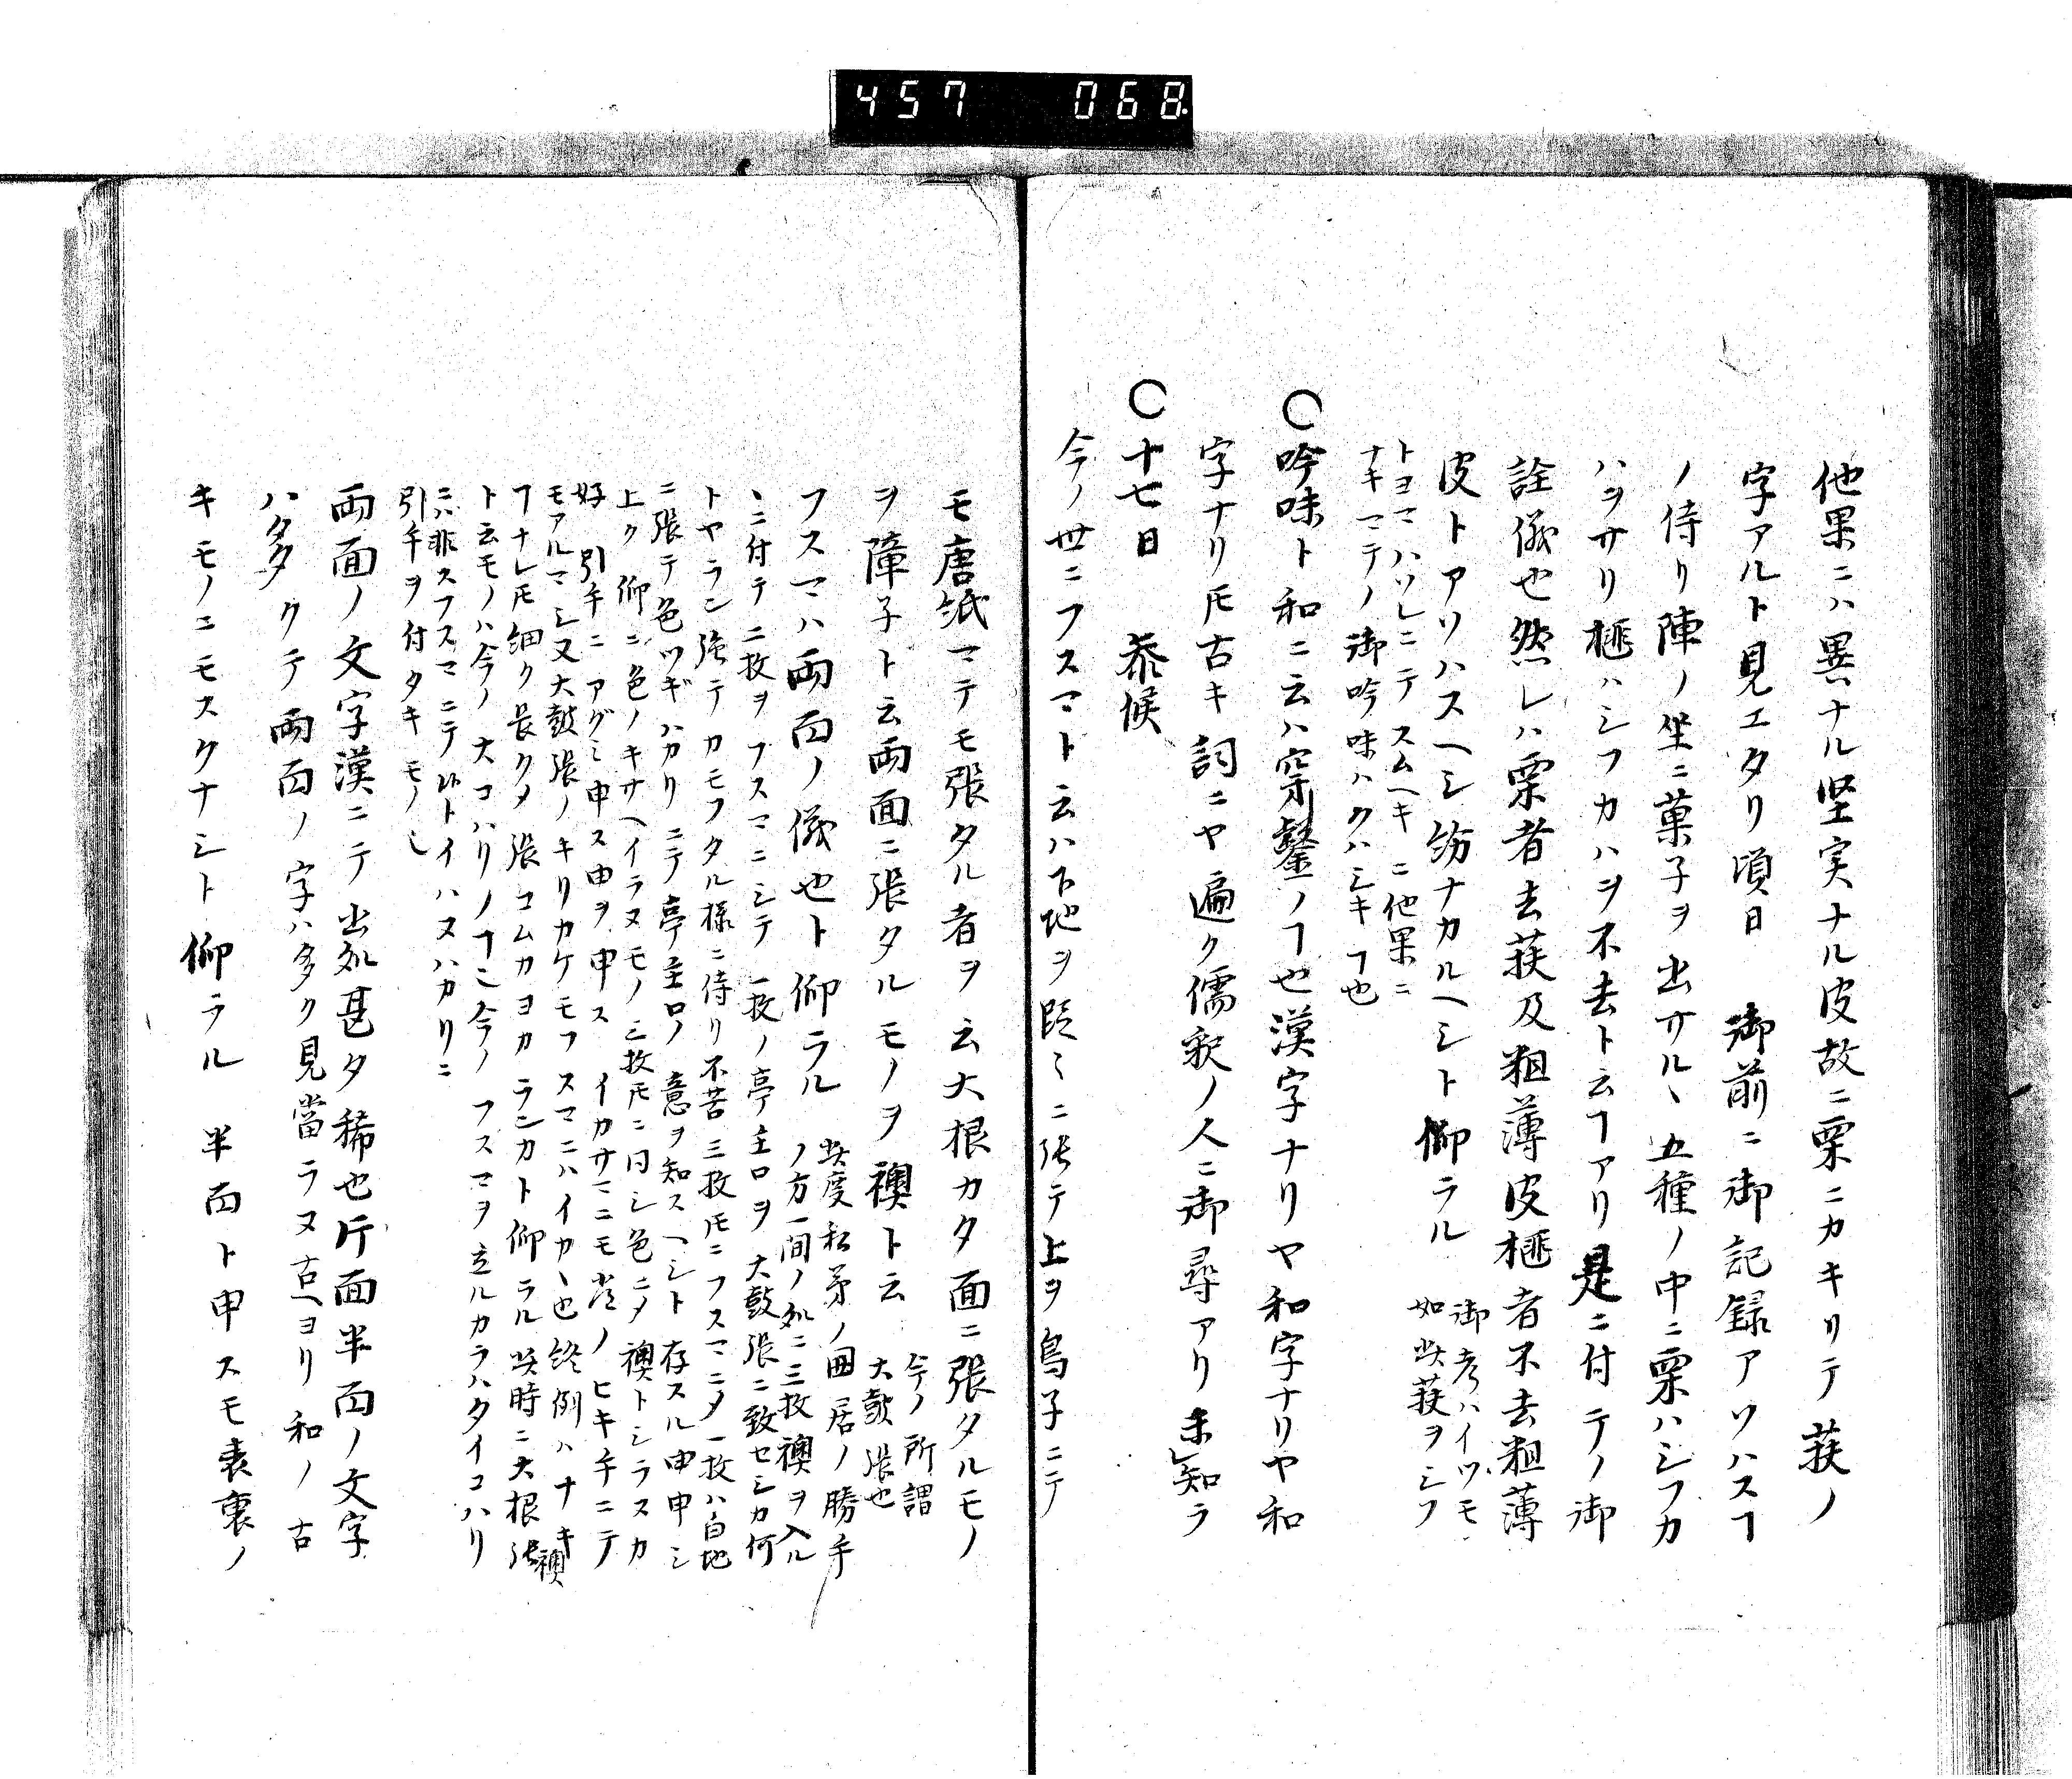 457 068
他果ニハ異ナル堅実ナル皮故ニ栗ニカキリテ莢ノ
字アルト見エタリ頃日 御前ニ御記録アソハスヿ
ノ侍リ陣ノ坐ニ菓子ヲ出サル丶五種ノ中ニ栗ハシフカ
ハヲサリ榧ハシフカハヲ不去ト云ヿアリ是ニ付テノ御
詮儀也然レハ栗者去莢及粗薄皮榧者不去粗薄
皮トアソハスヘシ紛ナカルヘシト仰ラル 御考ハイツモ
如此莢ヲシフ
トヨマハソレニテスムヘキニ他果ニ
ナキマテノ御吟味ハクハシキヿ也
〇吟味ト和ニ云ハ穿鑿ノヿ也漢字ナリヤ和字ナリヤ和
字ナリ𪜈古キ詞ニヤ遍ク儒釈ノ人ニ御尋アリ未知ラ
〇十七日 参候
今ノ世ニフスマト云ハ下地ヲ段々ニ張テ上ヲ鳥子ニテ
モ唐紙マテモ張タル者ヲ云大根カタ面ニ張タルモノ
ヲ障子ト云両面ニ張タルモノヲ襖ト云 今ノ所謂
大鼓張也
フスマハ両面ノ儀也ト仰ラル 此度私茅ノ囲居ノ勝手
ノ方一間ノ処ニ三枚襖ヲ入ル
丶ニ付テ二枚ヲフスマニシテ一枚ノ亭主口ヲ大鼓張ニ致セシカ何
トヤラン強テカモフタル様ニ侍リ不苦三枚𪜈ニフスマニメ一枚ハ白地
ニ張テ色ツギハカリニテ亭主口ノ意ヲ知スヘシト存スル由申シ
上ク仰ニ色ノキサヘイラヌモノ三枚𪜈ニ同シ色ニメ襖トシラスカ
好 引手ニアグミ申ス由ヲ申ス イカサマニモ常ノヒキ手ニテ
モアルマシ又大鼓張ノキリカケモフスマニハイカ丶也終例ハナキ襖
ヿナレ𪜈細ク長クメ張コムカヨカランカト仰ラル此時ニ大根張
ト云モノハ今ノ大コハリノヿ也今ノフスマヲ立ルカラハタイコハリ
ニハ非スフスマニテ候トイハヌハカリニ
引手ヲ付タキモノ也
両面ノ文字漢ニテ出処甚タ稀也片面半面ノ文字
ハタタクテ両面ノ字ハ多ク見當ラヌ古ヘヨリ和ノ古
キモノニモスクナシト仰ラル 半面ト申スモ表裏ノ